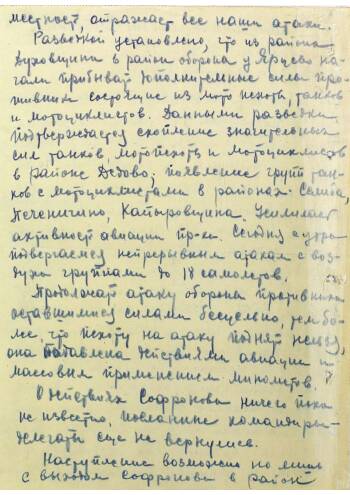 местност, отражает все наши атаки.
Разведкой установлено, что из района
Духовщина в район оборона у Ярцева на-
чали прибывать дополнительные силы про-
тивника состоящие из мото пехоты, танков
и мотоциклистов. Данными разведки
подтверждается скопление значительных
сил танков, мотопехоты и мотоциклистов
в районе Дедово; появление групп тан-
ков с мотоциклистами в районах
Печеничино, Капыровщина. Усиливает
активност авиации пр-ка. Сегодня с утра
подвергаемся непрерывным атакам с воз-
духа группами до 18 самолетов.
Продолжат атаку оборона противника
оставшимися силами бесцельно, тем бо-
лее, что пехоту на атаку поднят нельзя,
она подавлена действиями авиации и
массовым применением минометов.
О действиях Софронова ничего пока
не известно, посланные командиры-
делегаты еще не вернулись.
Наступление возможно но лишь
с выходом Софронова в район